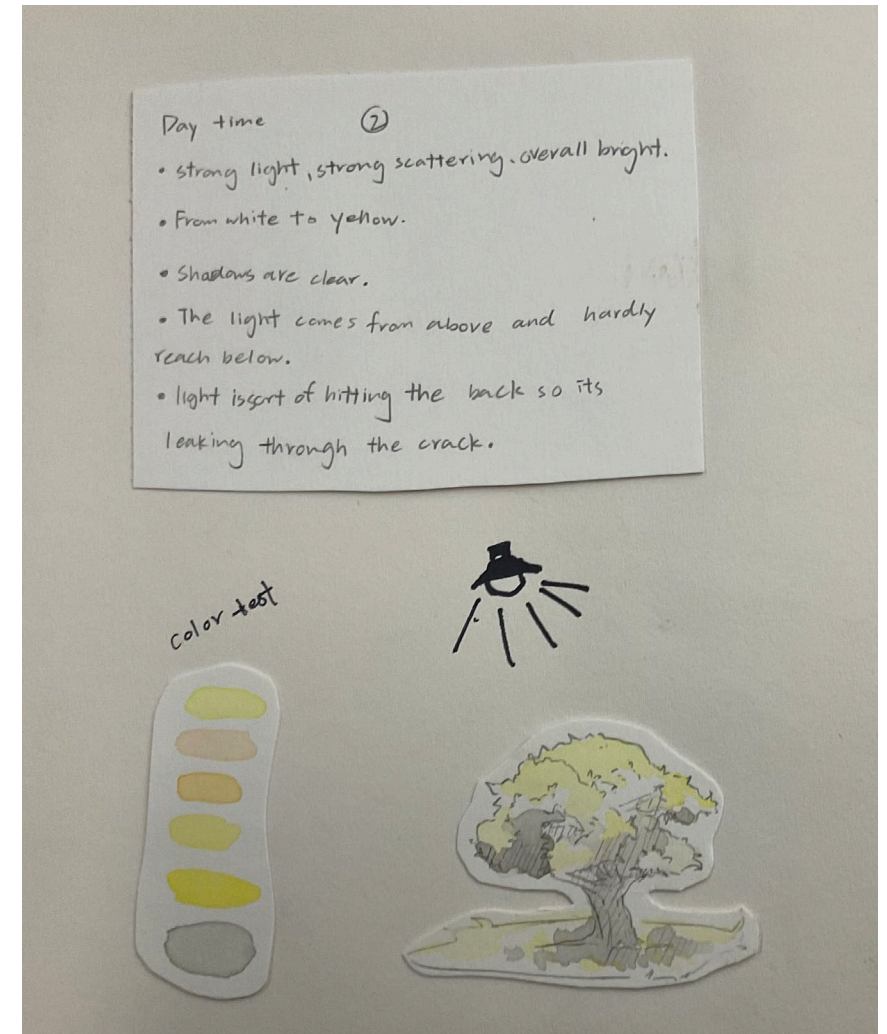 Day time ②
• strong light, strong scattering. overall bright.
• From white to yellow.
• Shadows are clear.
• The light comes from above and hardly
reach below.
• light is sort of hitting the back so its
leaking through the crack.
color test